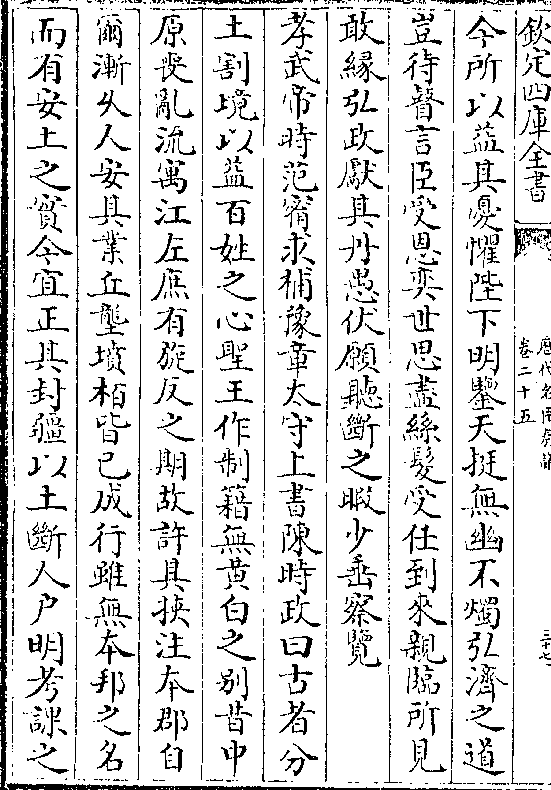 欽定四庫全書
歷代名臣奏議
卷二十五
三十七
今所以益其憂懼陛下明鑒天挺無幽不燭弘濟之道
豈待瞽言臣受恩奕世思盡絲髮受任到來親臨所見
敢緣弘政獻其丹愚伏願聽斷之暇少垂察覽
孝武帝時范甯求補豫章太守上書陳時政曰古者分
土割境以益百姓之心聖王作制籍無黄白之别昔中
原喪亂流寓江左庶有旋反之期故許其挾注本郡自
爾漸久人安其業丘壟墳栢皆已成行雖無本邦之名
而有安土之實今宜正其封疆以土斷人户明考課之